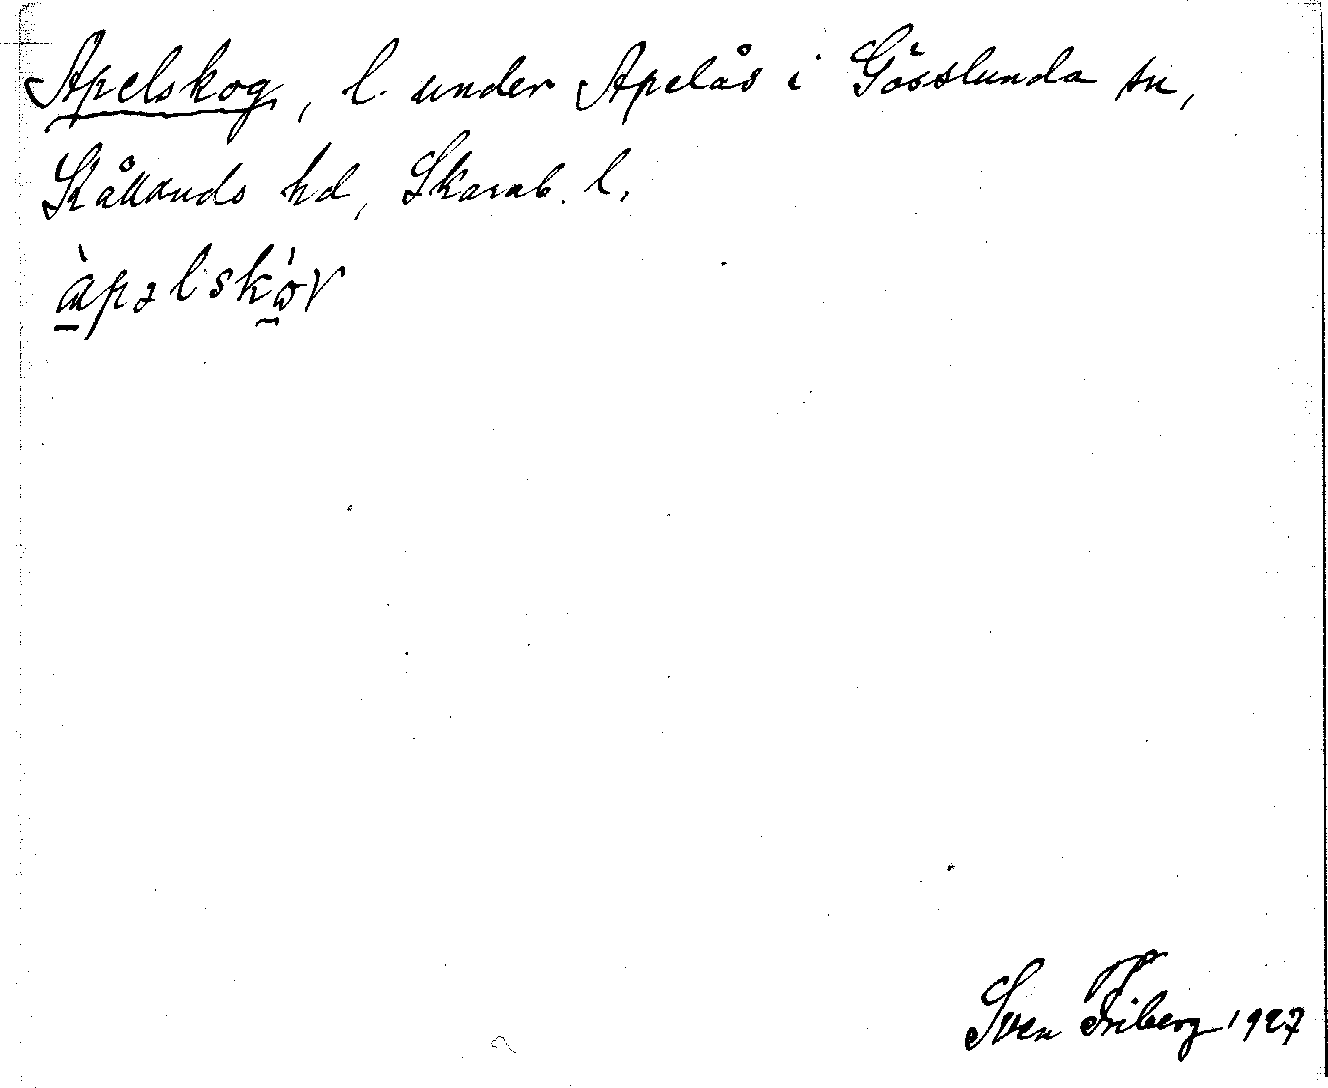 Apelskog, l. under Apelås i Gösslunda sn,
Kållands hd, Skarab. l.
àpəlskòr
Sven Friberg 1927